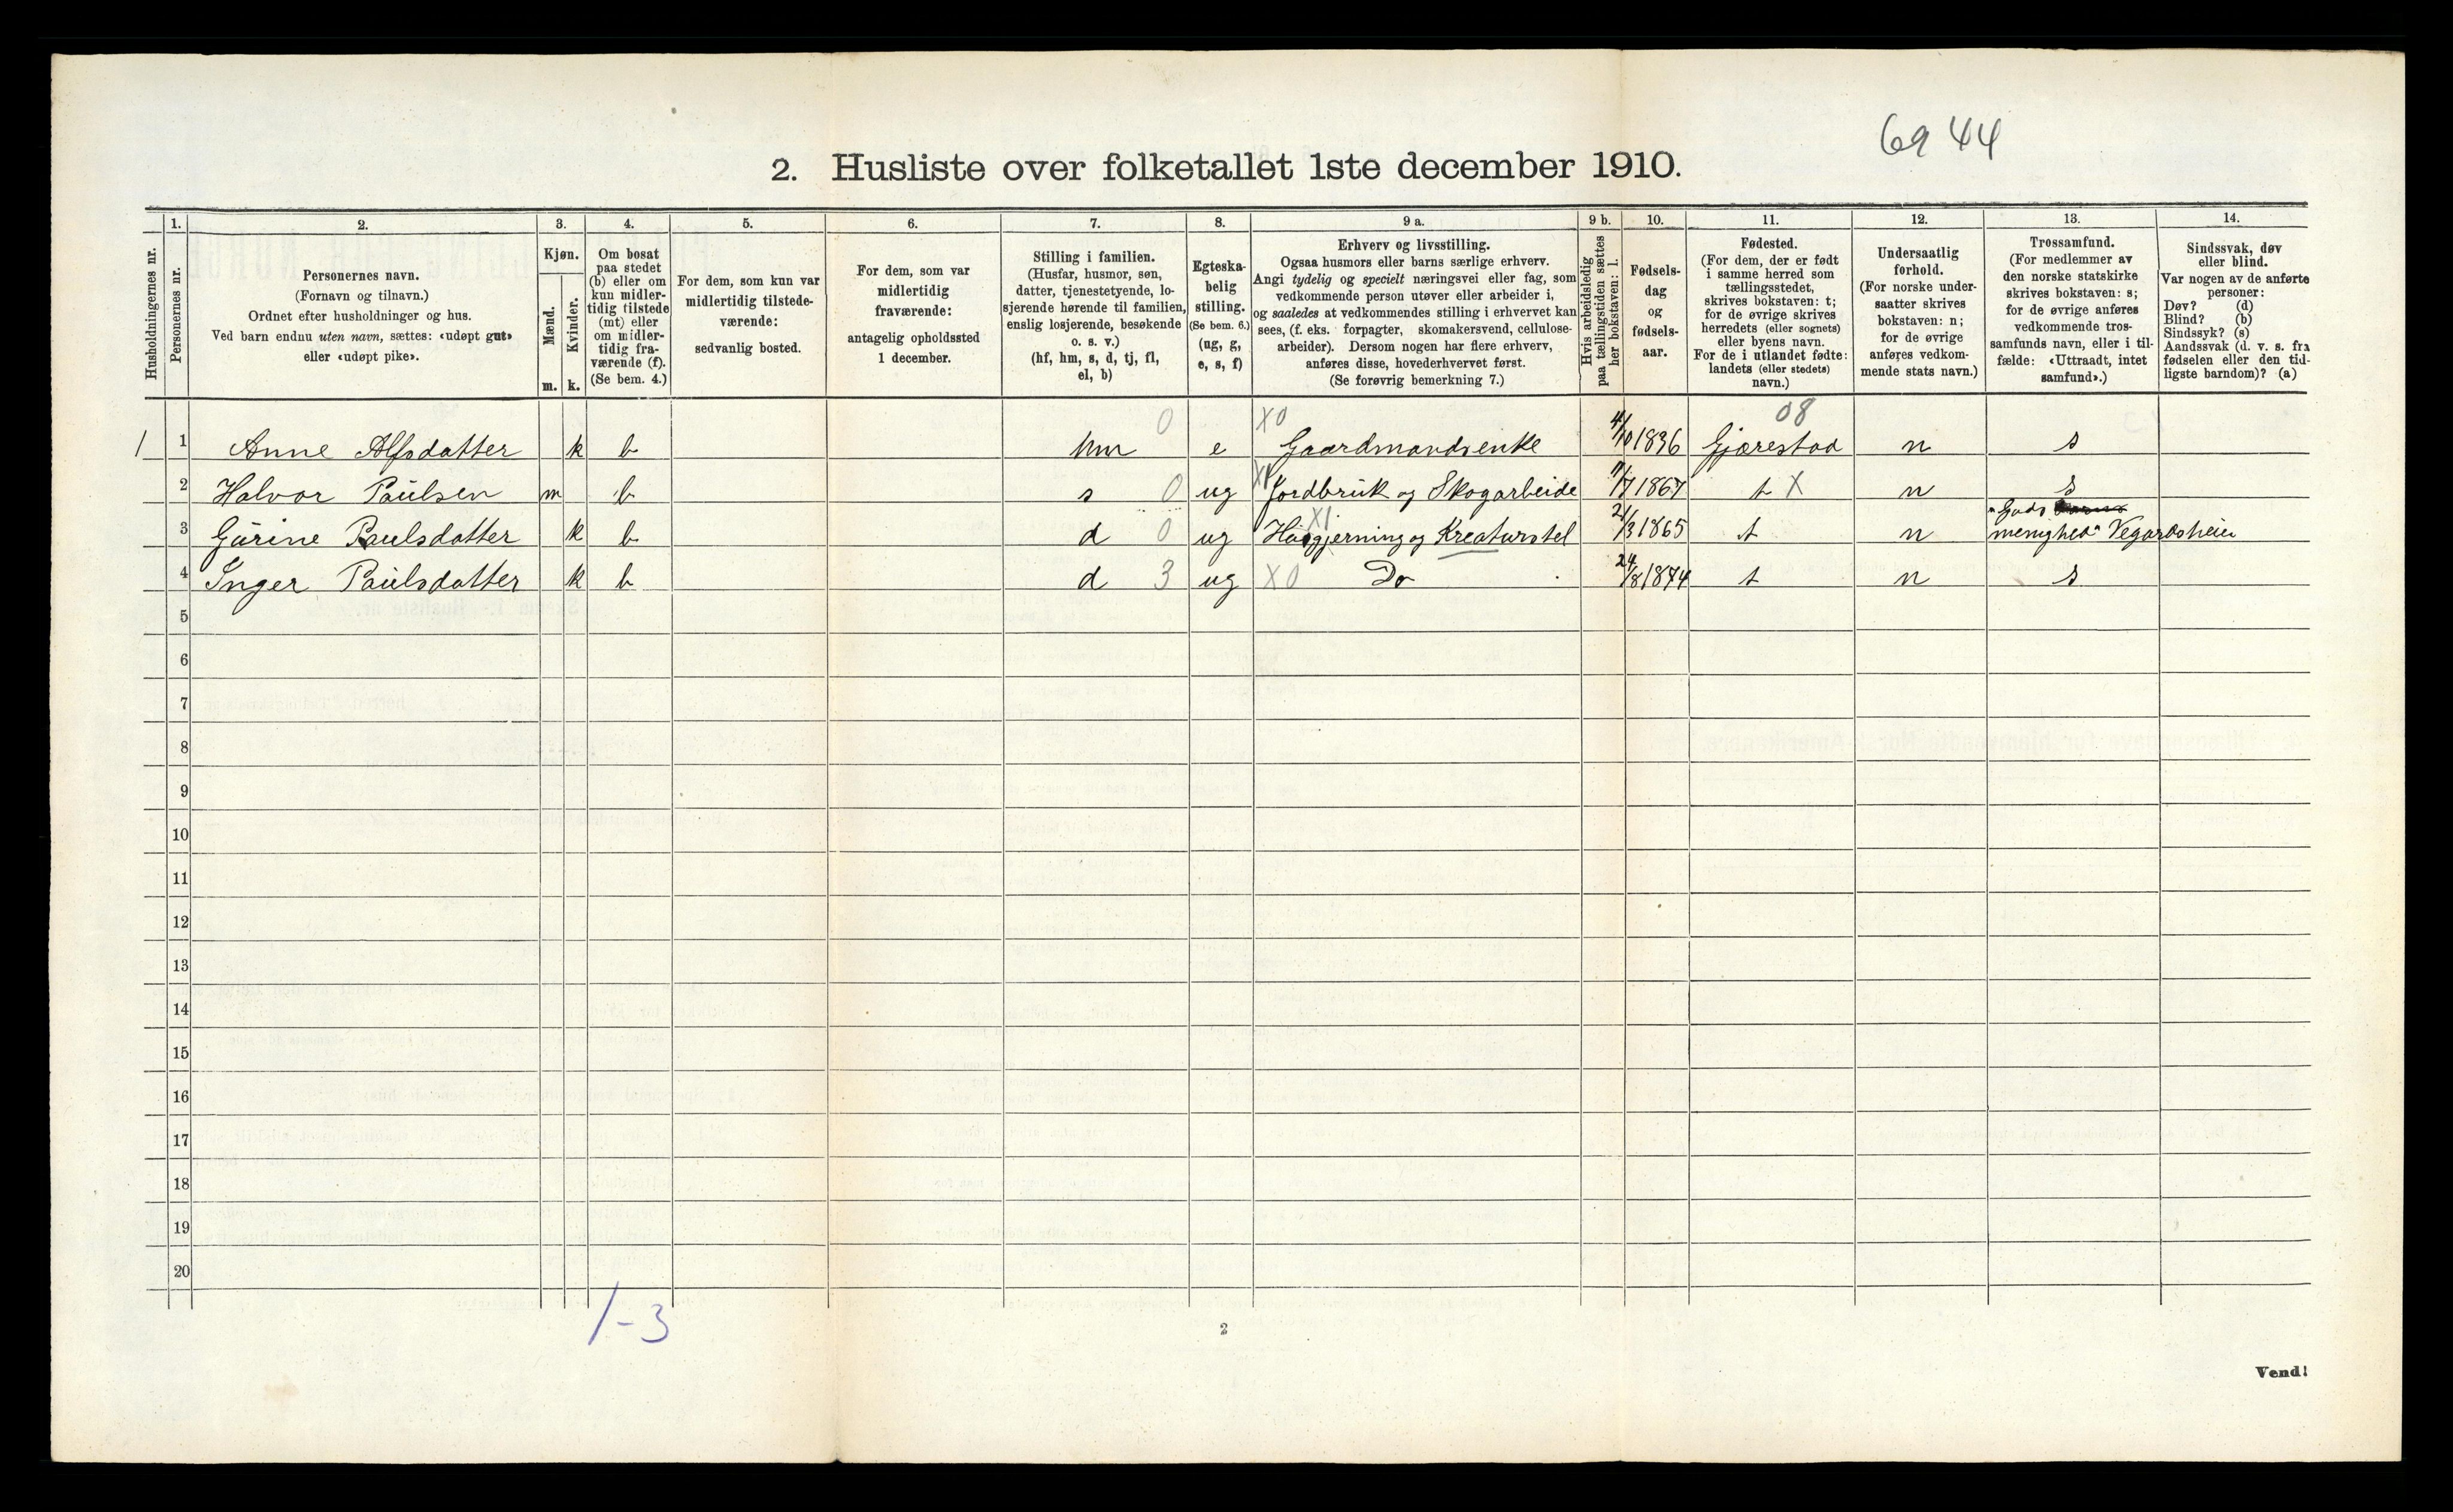 69 44
2. Husliste over folketallet 1ste december 1910.
Husholdningernes nr.
1.
Personernes nr.
2.
Personernes navn.
(Fornavn og tilnavn.)
Ordnet efter husholdninger og hus.
Ved barn endnu uten navn, sættes: «udøpt gut»
eller «udøpt pike».
3.
Kjøn.
Mænd.
m.
Kvinder.
k.
4.
Om bosat
paa stedet
(b) eller om
kun midler-
tidig tilstede
(mt) eller
om midler-
tidig fra-
værende (f).
(Se bem. 4.)
5.
For dem, som kun var
midlertidig tilstede-
værende:
sedvanlig bosted.
6.
For dem, som var
midlertidig
fraværende:
antagelig opholdssted
1 december.
7.
Stilling i familien.
(Husfar, husmor, søn,
datter, tjenestetyende, lo-
sjerende hørende til familien,
enslig losjerende, besøkende
o. s. v.)
(hf, hm, s, d, tj, fl,
el, b)
8.
Egteska-
belig
stilling.
(Se bem. 6.)
(ug, g,
e, s, f)
9 a.
Erhverv og livsstilling.
Ogsaa husmors eller barns særlige erhverv.
Angi tydelig og specielt næringsvei eller fag, som
vedkommende person utøver eller arbeider i,
og saaledes at vedkommendes stilling i erhvervet kan
sees, (f. eks. forpagter, skomakersvend, cellulose-
arbeider). Dersom nogen har flere erhverv,
anføres disse, hovederhvervet først.
(Se forøvrig bemerkning 7.)
9 b.
Hvis arbeidsledig
paa tællingstiden sættes
her bokstaven: l.
10.
Fødsels-
dag
og
fødsels-
aar.
11.
Fødested.
(For dem, der er født
i samme herred som
tællingsstedet,
skrives bokstaven: t;
for de øvrige skrives
herredets (eller sognets)
eller byens navn.
For de i utlandet fødte:
landets (eller stedets)
navn.)
12.
Undersaatlig
forhold.
(For norske under-
saatter skrives
bokstaven: n;
for de øvrige
anføres vedkom-
mende stats navn.)
13.
Trossamfund.
(For medlemmer av
den norske statskirke
skrives bokstaven: s;
for de øvrige anføres
vedkommende tros-
samfunds navn, eller i til-
fælde: «Uttraadt, intet
samfund».)
14.
Sindssvak, døv
eller blind.
Var nogen av de anførte
personer:
Døv? (d)
Blind? (b)
Sindssyk? (s)
Aandssvak (d. v. s. fra
fødselen eller den tid-
ligste barndom)? (a)
0 X0 08
1 1 Anne Alfsdatter k b hm e Gaardmandsenke 4/10 1836 Gjærestad n s
2 Halvor Paulsen m b s 0 ug X1 Jordbruk og Skogarbeide 1/7 1867 t X n s
3 Gurine Paulsdatter k b d 0 ug X1 Husgjerning og Kreaturstel 21/3 1865 t n "Guds menighed" Vegardsheien
4 Inger Paulsdatter k b d 3 ug X0 Do 24/8 1874 t n s
5
6
7
8
9
10
11
12
13
14
15
16
17
18
19
20
1-3
2
Vend!